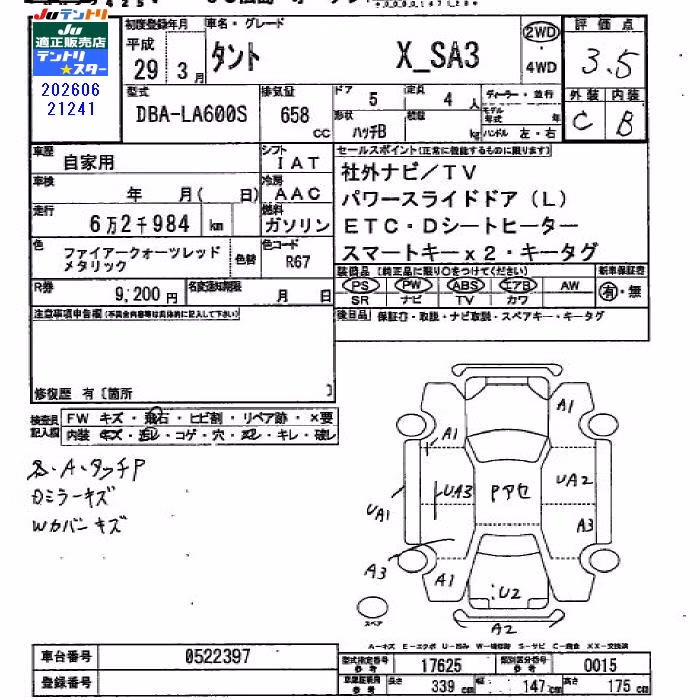 Juテントリ
Ju
適正販売店
テントリ
★スター
202606
21241
初度登録年月
平成
29 3月
車名・グレード
タント X_SA3
2WD
・
4WD
評価点
3.5
外装 内装
C B
型式
DBA-LA600S
排気量
658
cc
ドア 5 定員 4人
形状 ハッチB 積載 kg
ディーラー・並行
モデル年式 年
ハンドル 左・右
車歴 自家用
シフト IAT
車検 年 月( 日)
冷房 AAC
走行 6万2千984 km
燃料 ガソリン
色 ファイアークォーツレッド
メタリック
色替
色コード
R67
R券 9,200円
名変通知期限 月 日
セールスポイント(正常に機能するものに限ります)
社外ナビ/TV
パワースライドドア(L)
ETC・Dシートヒーター
スマートキーx2・キータグ
装備品(純正品に限り○をつけてください)
新車保証書
PS PW ABS エアB AW
SR ナビ TV カワ
有・無
後日品 保証書・取説・ナビ取説・スペアキー・キータグ
注意事項申告欄(不具合内容等は具体的に記入して下さい)
修復歴 有〔箇所 〕
検査員記入欄
FW キズ・飛石・ヒビ割・リペア跡・×要
内装 キズ・汚レ・コゲ・穴・・キレ・破レ
・A・タッチP
Dミラーキズ
Wカバーキズ
A1
A1
UA3
UA1
Pアセ
UA2
A3
A3
A1
U2
A2
スペア
A-キズ E-エクボ U-凹み W-補修跡 S-サビ C-腐食 XX-交換済
車台番号 0522397
登録番号
型式指定番号 参考 17625
類別区分番号 参考 0015
車検証記載 参考 長さ 339cm 幅 147cm 高さ 175cm